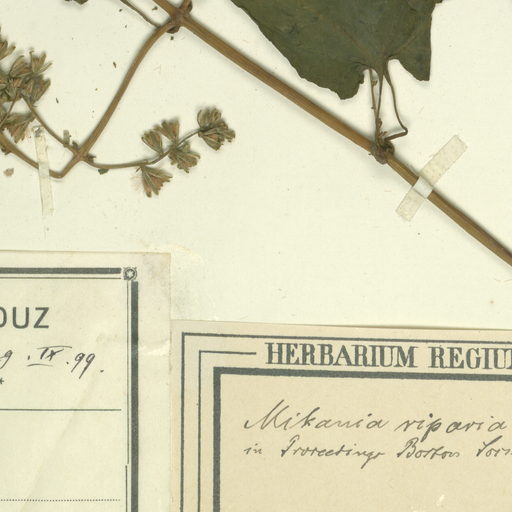 OUZ
9. IX. 99.
HERBARIUM REGIU
Mikania riparia
in Proceedings Boston